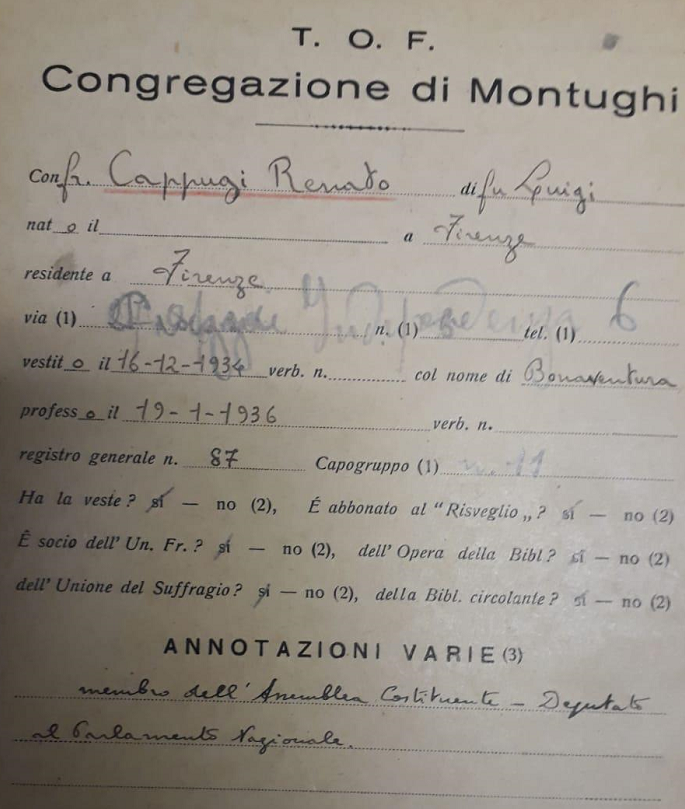 T. O. F.
Congregazione di Montughi
Confr. Cappugi Renato di fu Luigi
nat o il a Firenze
residente a Firenze
via (1) Indipendenza 6 n. (1) tel. (1)
vestit o il 16-12-1934 verb. n. col nome di Bonaventura
profess o il 19-1-1936 verb. n.
registro generale n. 87 Capogruppo (1) n. 11
Ha la veste? sí — no (2), É abbonato al "Risveglio„? sí — no (2)
È socio dell'Un. Fr.? sí — no (2), dell'Opera della Bibl? sí — no (2)
dell'Unione del Suffragio? sí — no (2), della Bibl. circolante? sí — no (2)
ANNOTAZIONI VARIE (3)
membro dell'Assemblea Costituente – Deputato
al Parlamento Nazionale.